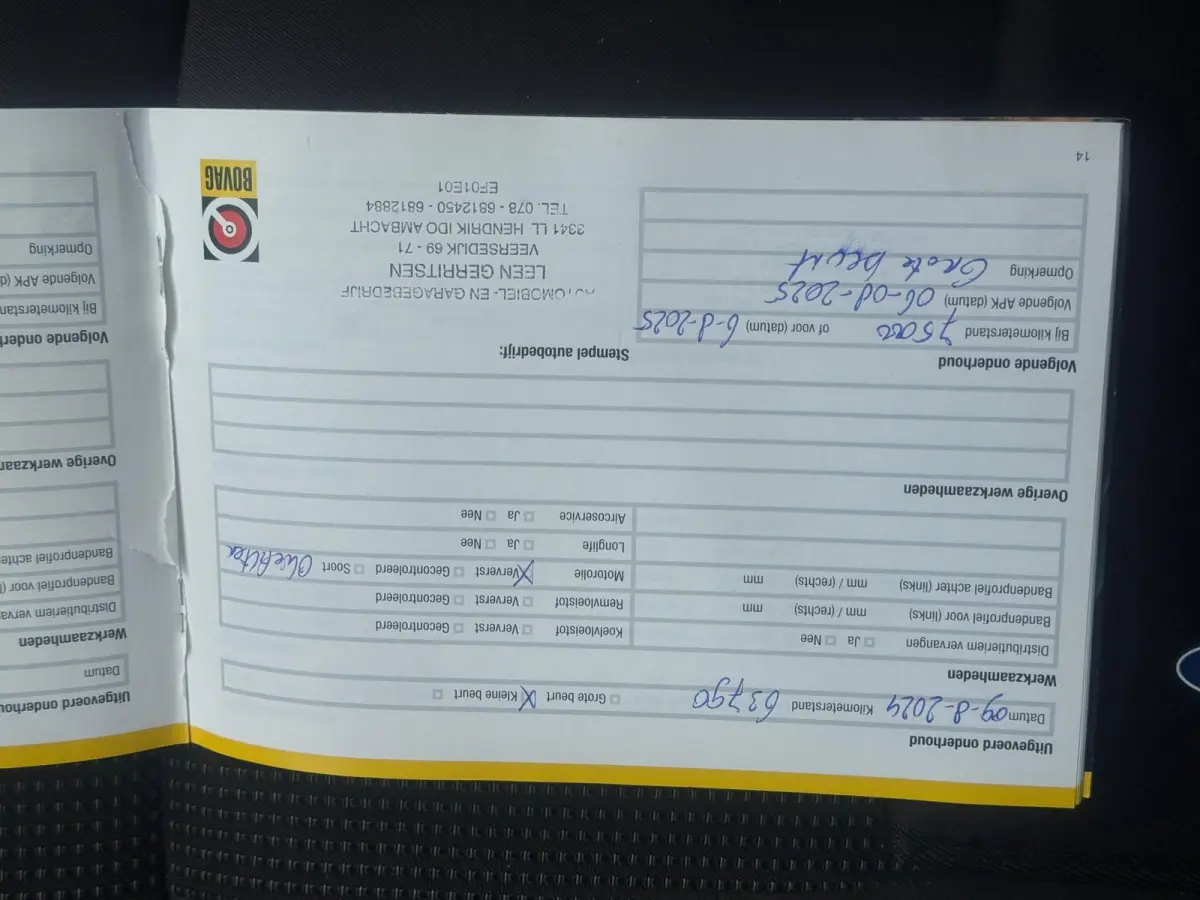 Uitgevoerd onderhoud
Datum 09-8-2024 Kilometerstand 63790 Grote beurt Kleine beurt
Werkzaamheden
Distributieriem vervangen Ja Nee
Bandenprofiel voor (links) mm / (rechts) mm
Bandenprofiel achter (links) mm / (rechts) mm
Koelvloeistof Ververst Gecontroleerd
Remvloeistof Ververst Gecontroleerd
Motorolie Ververst Gecontroleerd Soort
Longlife Ja Nee
Aircoservice Ja Nee
Overige werkzaamheden
Volgende onderhoud
Bij kilometerstand 75000 of voor (datum) 6-8-2025
Volgende APK (datum) 06-08-2025
Opmerking Grote beurt
Stempel autobedrijf:
AUTOMOBIEL- EN GARAGEBEDRIJF
LEEN GERRITSEN
VEERSEDIJK 69 - 71
3341 LL HENDRIK IDO AMBACHT
TEL. 078 - 6812450 - 6812884
EF01E01
BOVAG
14
Uitgevoerd
Datum
Werkzaamheden
Distributieriem
Bandenprofiel voor
Bandenprofiel
Overige
Volgende
Bij
Volgende APK
Opmerking